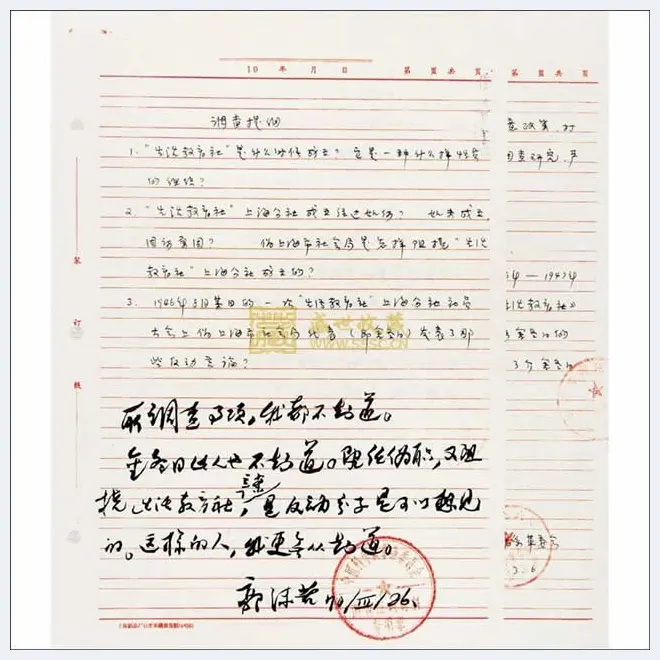 19 年 月 日 第 页 共 页
第 页 共 页
调查提纲
1. "生活教育社"是什么时候成立？它是一种什么样性质
的组织？
2. "生活教育社"上海分社成立经过如何？如未成立，
因何原因？ 伪上海市社会局是怎样阻挠"生活
教育社"上海分社成立的？
3. 1946年3月某日的一次"生活教育社"上海分社社员
大会上伪上海市社会局代表（ ）发表了那
些反动言论？
所调查事项，我都不知道。
金 此人也不知道。既任伪职，又阻
挠生活教育社立案，是反动分子是可以想见
的。这样的人，我更无从知道。
郭沫若 70/III/26.
装
订
线
盛世收藏
WWW.SSSC.CN
— 1947年
生活教育社
3.6